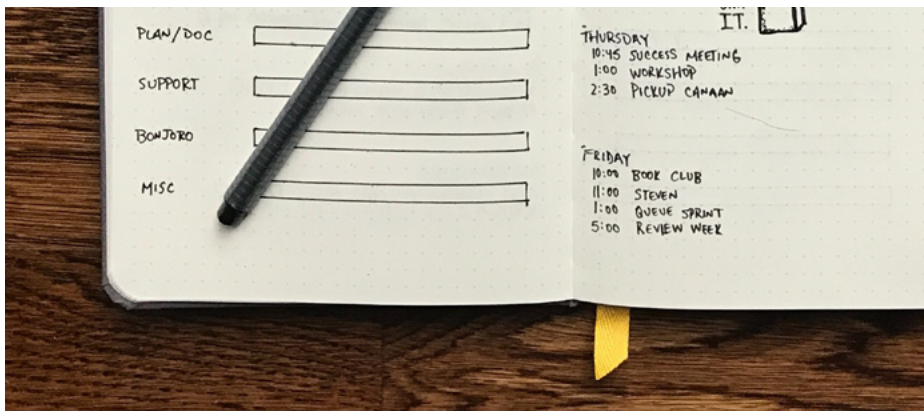 PLAN/DOC
SUPPORT
BONJORO
MISC
IT.
THURSDAY
10:45 SUCCESS MEETING
1:00 WORKSHOP
2:30 PICKUP CANAAN
FRIDAY
10:00 BOOK CLUB
11:00 STEVEN
1:00 QUEUE SPRINT
5:00 REVIEW WEEK